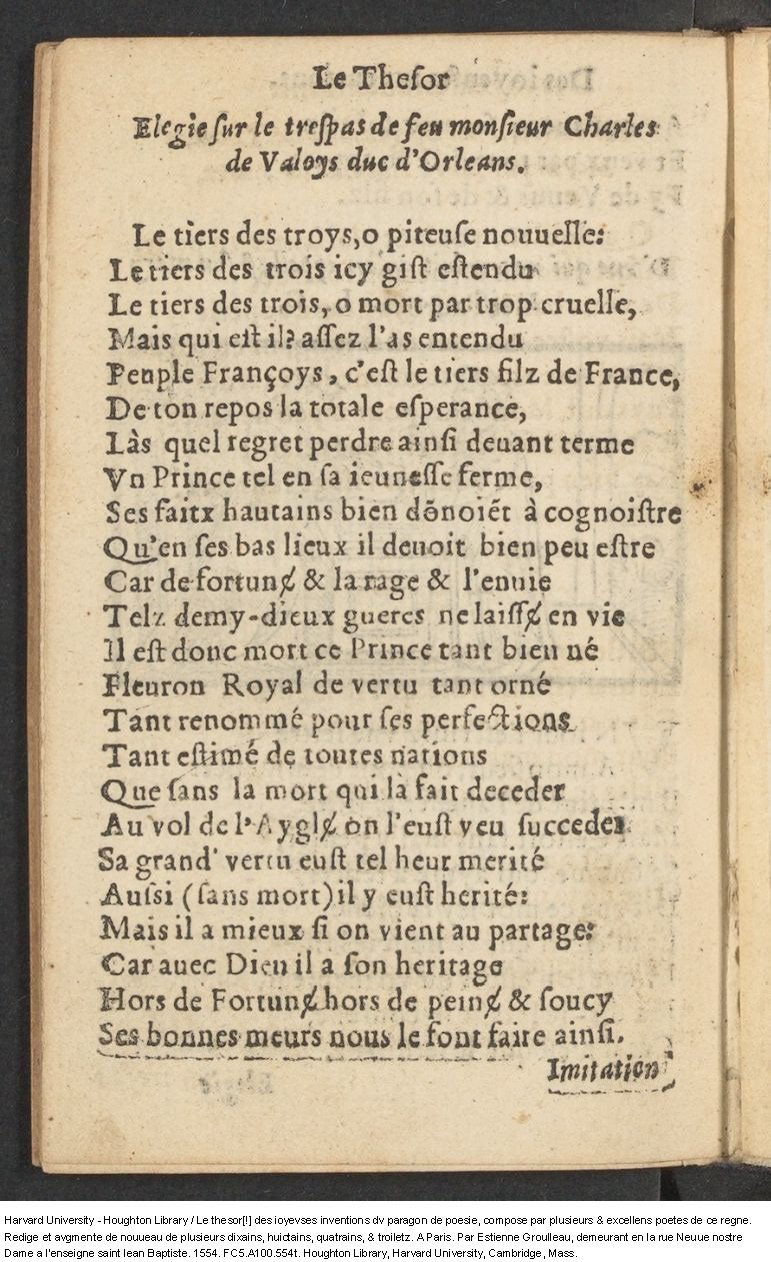 Le Theſor
Elegie ſur le treſpas de feu monſieur Charles
de Valoys duc d'Orleans.
Le tiers des troys, o piteuſe nouuelle:
Le tiers des trois icy giſt eſtendu
Le tiers des trois, o mort par trop cruelle,
Mais qui eſt il? aſſez l'as entendu
Peuple Françoys, c'eſt le tiers filz de France,
De ton repos la totale eſperance,
Làs quel regret perdre ainſi deuant terme
Vn Prince tel en ſa ieuneſſe ferme,
Ses faitx hautains bien dõnoiẽt à cognoiſtre
Qu'en ſes bas lieux il deuoit bien peu eſtre
Car de fortunɇ & la rage & l'enuie
Telz demy-dieux gueres ne laiſſɇ en vie
Il eſt donc mort ce Prince tant bien né
Fleuron Royal de vertu tant orné
Tant renommé pour ſes perfections
Tant eſtimé de toutes nations
Que ſans la mort qui là fait deceder
Au vol de l'Ayglɇ on l'euſt veu ſucceder
Sa grand' vertu euſt tel heur merité
Auſsi (ſans mort) il y euſt herité:
Mais il a mieux ſi on vient au partage:
Car auec Dieu il a ſon heritage
Hors de Fortunɇ hors de peinɇ & ſoucy
Ses bonnes meurs nous le font faire ainſi.
Imitation
Harvard University - Houghton Library / Le thesor[!] des ioyevses inventions dv paragon de poesie, compose par plusieurs & excellens poetes de ce regne.
Redige et avgmente de nouueau de plusieurs dixains, huictains, quatrains, & troiletz. A Paris. Par Estienne Groulleau, demeurant en la rue Neuue nostre
Dame a l'enseigne saint Iean Baptiste. 1554. FC5.A100.554t. Houghton Library, Harvard University, Cambridge, Mass.